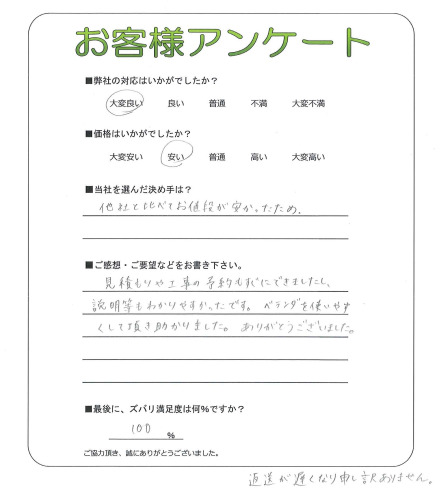 お客様アンケート
■弊社の対応はいかがでしたか？
大変良い 良い 普通 不満 大変不満
■価格はいかがでしたか？
大変安い 安い 普通 高い 大変高い
■当社を選んだ決め手は？
他社と比べてお値段が安かったため。
■ご感想・ご要望などをお書き下さい。
見積もりや工事の予約もすぐにできましたし、
説明等もわかりやすかったです。ベランダを使いやす
くして頂き助かりました。ありがとうございました。
■最後に、ズバリ満足度は何％ですか？
100 %
ご協力頂き、誠にありがとうございました。
返送が遅くなり申し訳ありません。